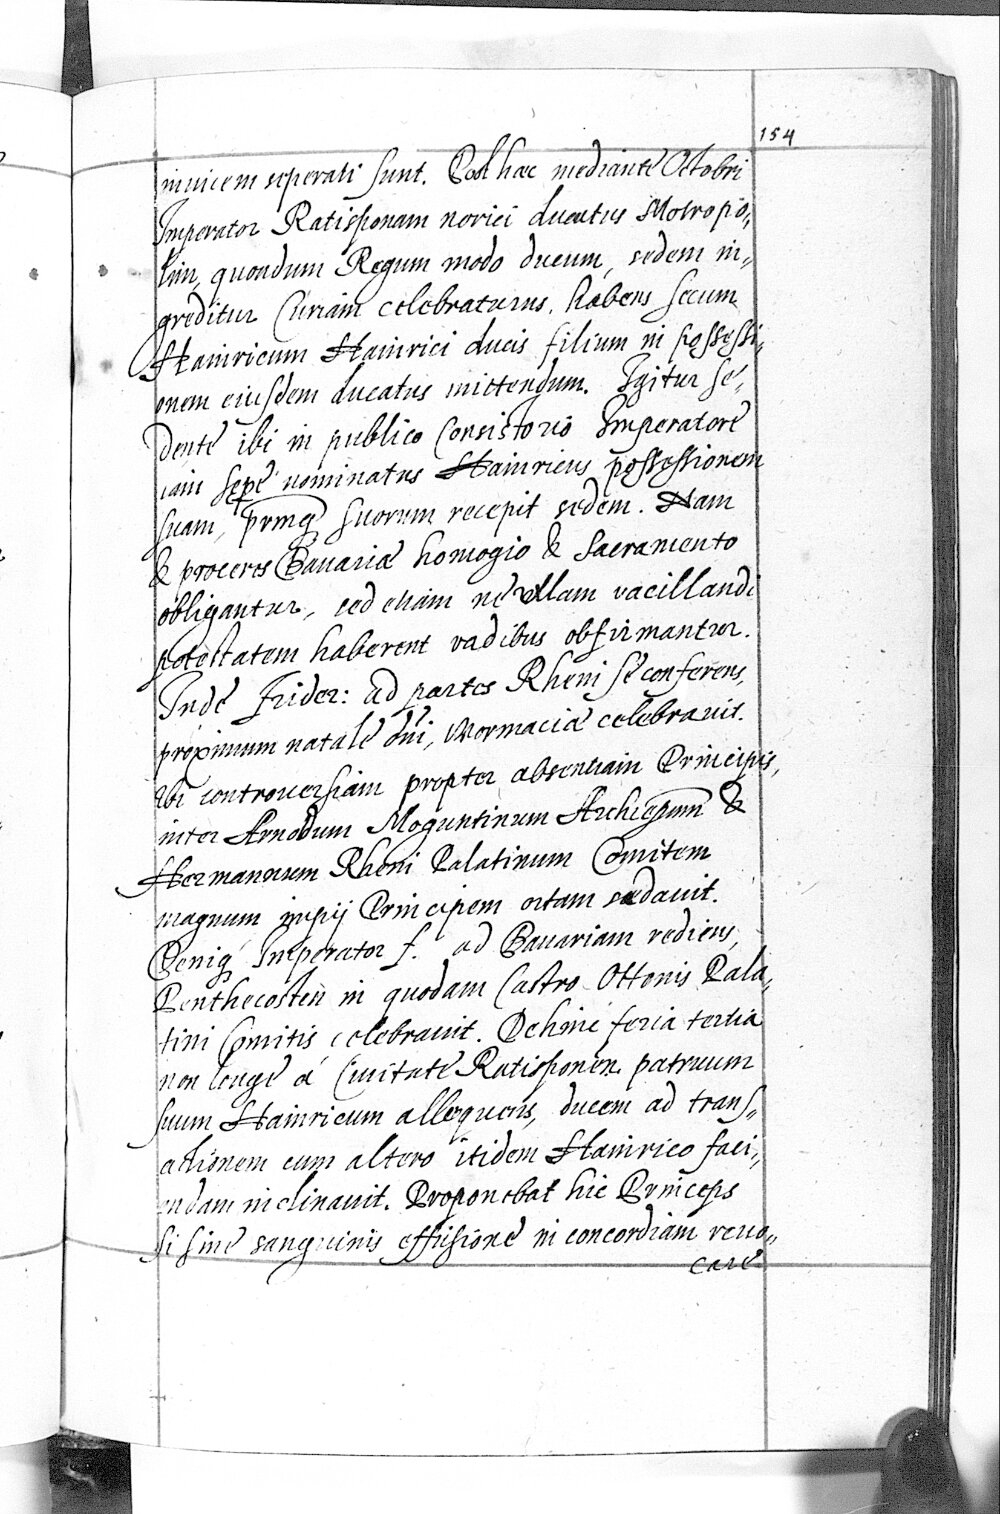 154
inuicem seperati sunt. Post hac mediante Octobri
Imperator Ratisponam norici ducatus Motropo„
lim, quondam Regum modo ducum, sedem in„
greditur Curiam celebraturus, habens secum
Hainricum Hainrici ducis filium in possessi„
onem eiusdem ducatus mittendum. Igitur se„
dente ibi in publico Consistorio Imperatore
iam sepe nominatus Hainricus possessionem
suam, suorum recepit sedem. Nam
& proceres Bauariæ homogio & Sacramento
obligantur, sed etiam ne ullam vacillandi
potestatem haberent vadibus obfirmantur.
Inde Frider: ad partes Rheni se conferens,
proximum natale dñi, Wormaciæ celebrauit.
Ibi controuersiam propter absentiam Principis,
inter Arnoldum Moguntinum Archiepum &
Hermannum Rheni Palatinum Comitem
magnum Principem ortam sedauit.
Imperator f. ad Bauariam rediens,
Penthecosten in quodam Castro Ottonis Pala„
tini Comitis celebrauit. Dehinc feria tertia
non longe á Ciuitate Ratisponen. patruum
suum Hainricum alloquens, ducem ad trans„
actionem cum altero itidem Hainrico faci„
endam inclinauit. Proponebat hic Princeps
si sine sanguinis effusione in concordiam reuo„
care